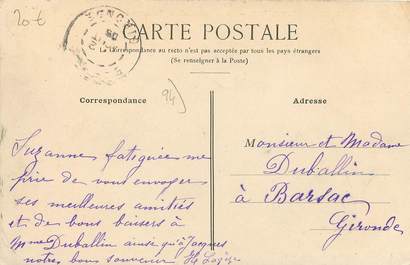 20 €
CARTE POSTALE
La Correspondance au recto n'est pas acceptée par tous les pays étrangers
(Se renseigner à la Poste)
94
Correspondance
Suzanne fatiguée me
prie de vous envoyer
ses meilleures amitiés
et de bons baisers à
Mme Duballin ainsi qu'à Jacques
notre bon souvenir
Adresse
Monsieur et Madame
Duballin
à Barsac
Gironde